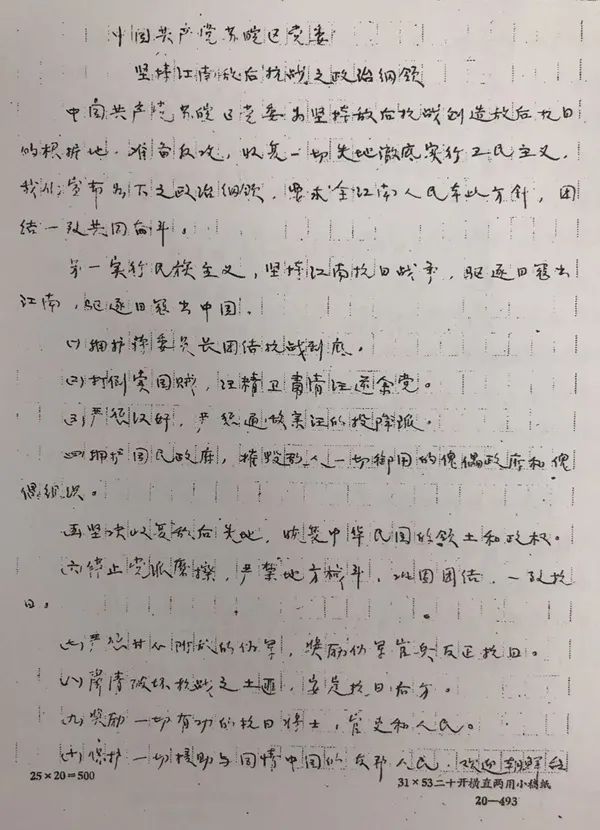 中国共产党苏皖区党委
坚持江南敌后抗战之政治纲领
中国共产党苏皖区党委为坚持敌后抗战创造敌后抗日
的根据地，准备反攻，收复一切失地澈底实行三民主义，
我们宣布为下之政治纲领，要求全江南人民本此方针，团
结一致共同奋斗。
第一实行民族主义，坚持江南抗日战争，驱逐日寇出
江南，驱逐日寇出中国。
(一)拥护蒋委员长团结抗战到底。
(二)打倒卖国贼，汪精卫肃清汪逆余党。
(三)严惩汉奸，严惩通敌亲汪的投降派。
(四)拥护国民政府，摧毁敌人一切御用的傀儡政府和傀
儡组织。
(五)坚决收复敌后失地，恢复中华民国的领土和政权。
(六)停止党派磨擦，严禁地方械斗，巩固团结，一致抗
日。
(七)严惩甘心附敌的伪军，奖励伪军官兵反正抗日。
(八)肃清破坏抗战之土匪，安定抗日后方。
(九)奖励一切有功的抗日将士，官吏和人民。
(十)保护一切援助与同情中国的友邦人民，欢迎朝鲜
25×20=500
31×53二十开横直两用小稿纸
20—493